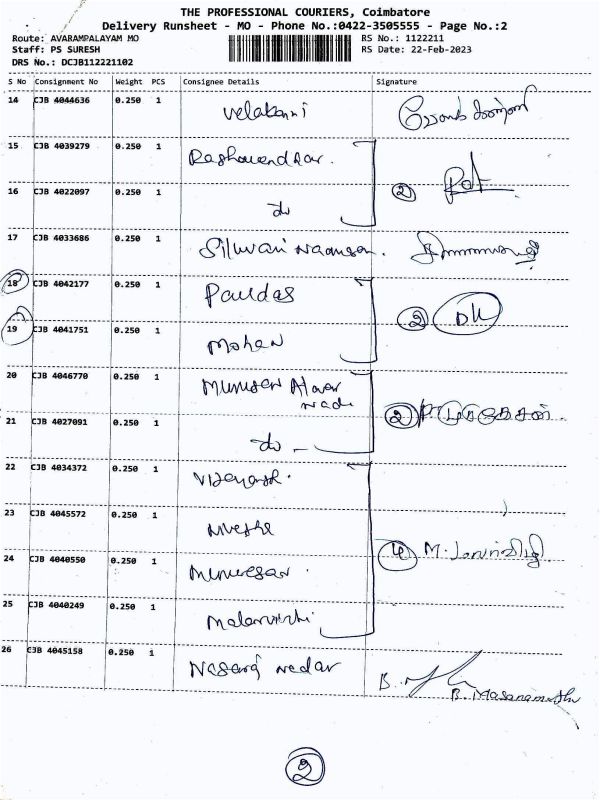 THE PROFESSIONAL COURIERS, Coimbatore
Delivery Runsheet - MO - Phone No.:0422-3505555 - Page No.:2
Route: AVARAMPALAYAM MO RS No.: 1122211
Staff: PS SURESH RS Date: 22-Feb-2023
DRS No.: DCJB112221102
S No Consignment No Weight PCS Consignee Details Signature
14 CJB 4044636 0.250 1 Velakanni
15 CJB 4039279 0.250 1
16 CJB 4022097 0.250 1 do 2
17 CJB 4033686 0.250 1
18 CJB 4042177 0.250 1 Pauldas
19 CJB 4041751 0.250 1 Mohan 2 DK
20 CJB 4046770 0.250 1
21 CJB 4027091 0.250 1 do - 2
22 CJB 4034372 0.250 1
23 CJB 4045572 0.250 1
24 CJB 4040550 0.250 1 4
25 CJB 4040249 0.250 1
26 CJB 4045158 0.250 1 Nadar
B. Masanamuthu
2